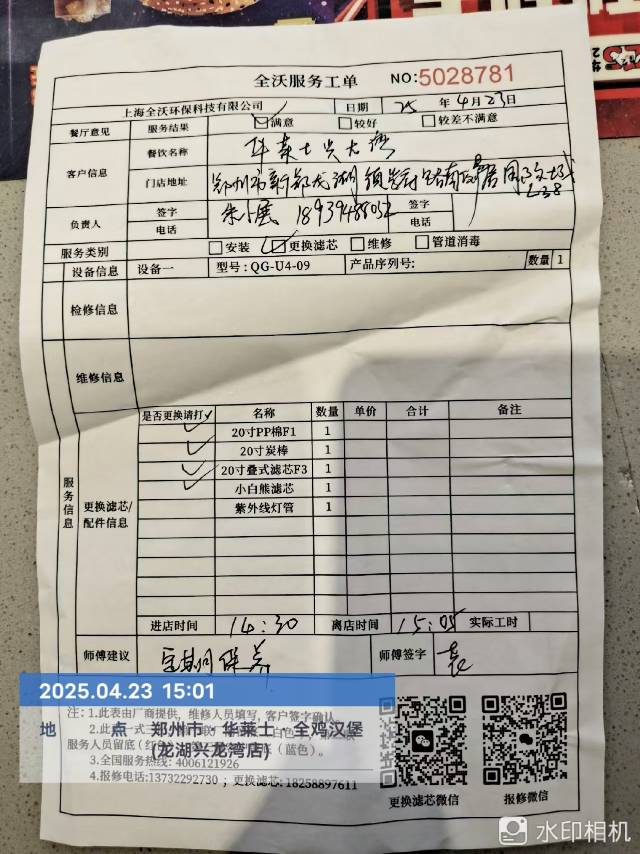 全沃服务工单 NO:5028781
上海全沃环保科技有限公司 日期 25 年 4 月 23 日
餐厅意见 服务结果 ☑满意 □较好 □较差不满意
客户信息 餐饮名称 华莱士
门店地址 郑州市新郑龙湖
负责人 签字 电话 朱 签字 电话
服务类别 □安装 ☑更换滤芯 □维修 □管道消毒
设备信息 设备一 型号:QG-U4-09 产品序列号: 数量 1
检修信息
维修信息
服务信息
更换滤芯/配件信息
是否更换请打✓ 名称 数量 单价 合计 备注
✓ 20寸PP棉F1 1
✓ 20寸炭棒 1
✓ 20寸叠式滤芯F3 1
小白熊滤芯 1
紫外线灯管 1
进店时间 14:30 离店时间 15:05 实际工时
师傅建议 定期保养 师傅签字 袁
2025.04.23 15:01
地 点 郑州市·华莱士·全鸡汉堡
(龙湖兴龙湾店)
注:1.此表由厂商提供,维修人员填写,客户签字确认
2.此
服务人员留底(红 (蓝色)。
3.全国服务热线: 4006121926
4.报修电话:13732292730 ; 更换滤芯: 18258897611
更换滤芯微信 报修微信
水印相机